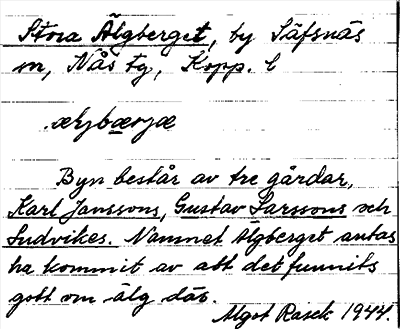 Stora Älgberget, by Säfsnäs
sn, Nås tg, Kopp. l
æljbærjæ
Byn består av tre gårdar,
Karl Janssons, Gustav Larssons och
Ludvikes. Namnet Älgberget antas
ha kommit av att det funnits
gott om älg där.
Algot Rasck 1944.